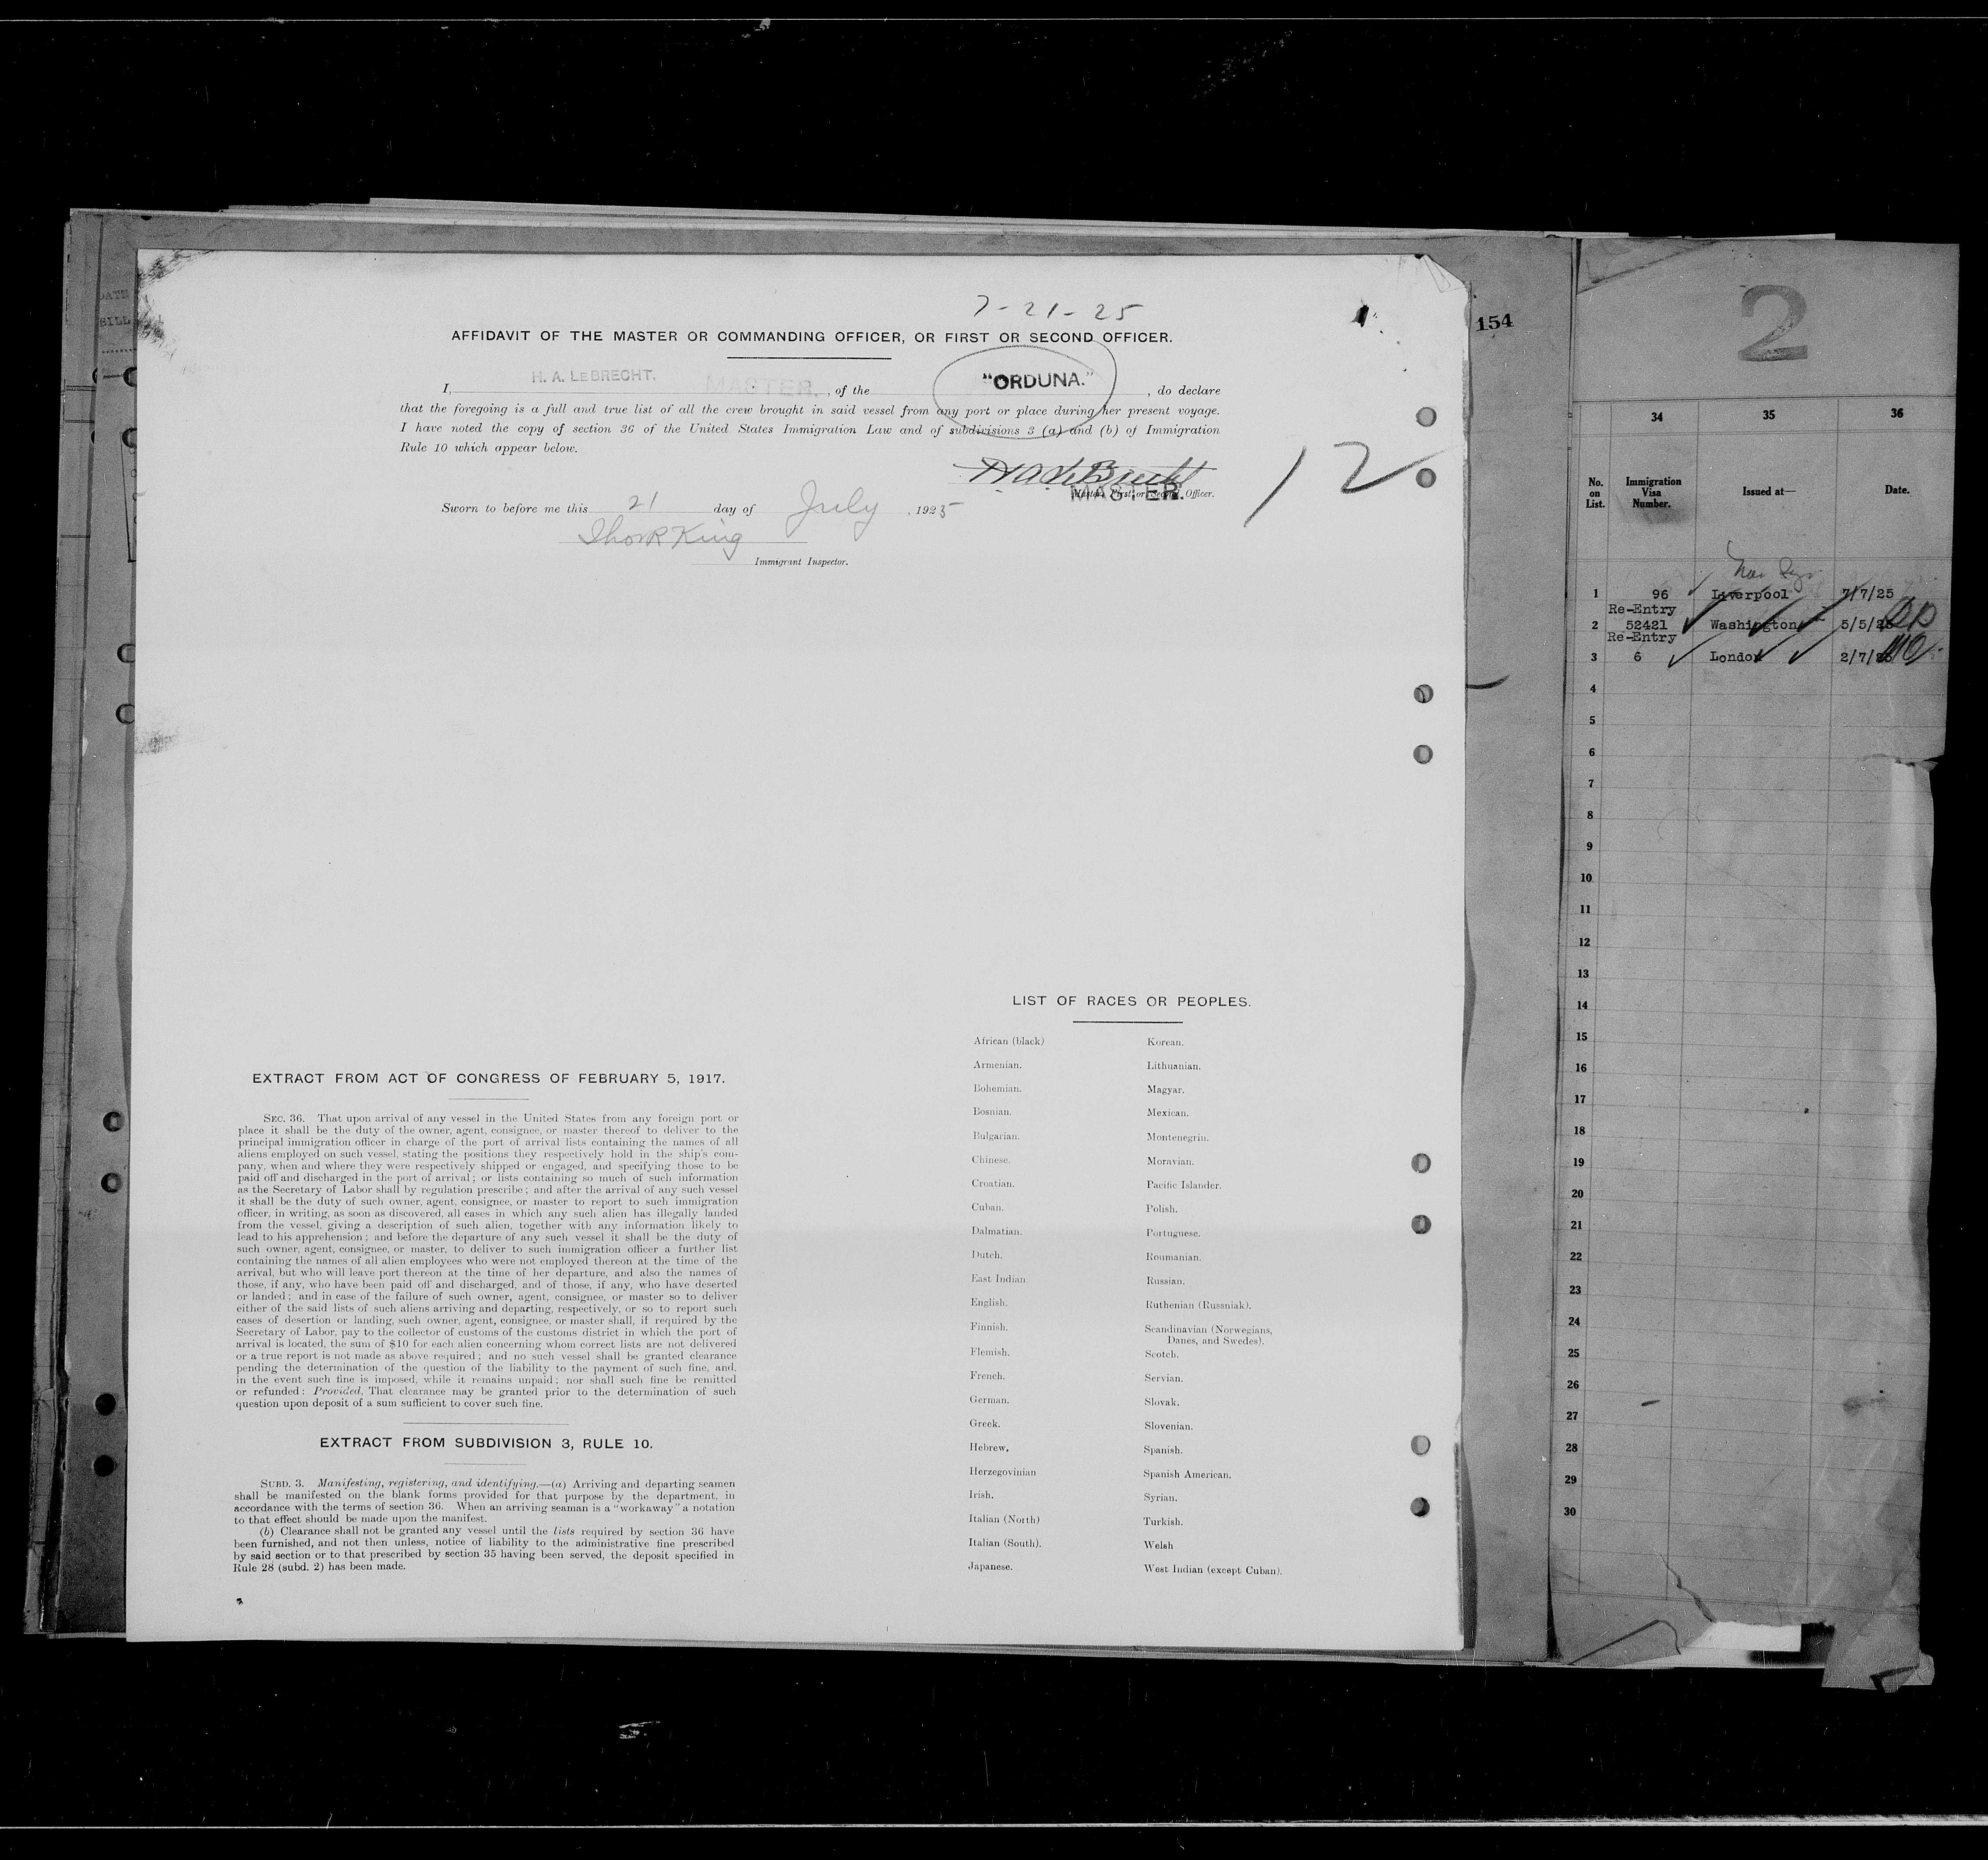 7-21-25
AFFIDAVIT OF THE MASTER OR COMMANDING OFFICER, OR FIRST OR SECOND OFFICER.
I, H. A. LEBRECHT. MASTER, of the "ORDUNA.", do declare
that the foregoing is a full and true list of all the crew brought in said vessel from any port or place during her present voyage.
I have noted the copy of section 36 of the United States Immigration Law and of subdivisions 3 (a) and (b) of Immigration
Rule 10 which appear below.
12
MASTER.
Master, First or Second Officer.
Sworn to before me this 21 day of July, 1925
King
Immigrant Inspector.
EXTRACT FROM ACT OF CONGRESS OF FEBRUARY 5, 1917.
SEC. 36. That upon arrival of any vessel in the United States from any foreign port or
place it shall be the duty of the owner, agent, consignee, or master thereof to deliver to the
principal immigration officer in charge of the port of arrival lists containing the names of all
aliens employed on such vessel, stating the positions they respectively hold in the ship's com-
pany, when and where they were respectively shipped or engaged, and specifying those to be
paid off and discharged in the port of arrival; or lists containing so much of such information
as the Secretary of Labor shall by regulation prescribe; and after the arrival of any such vessel
it shall be the duty of such owner, agent, consignee, or master to report to such immigration
officer, in writing, as soon as discovered, all cases in which any such alien has illegally landed
from the vessel, giving a description of such alien, together with any information likely to
lead to his apprehension; and before the departure of any such vessel it shall be the duty of
such owner, agent, consignee, or master, to deliver to such immigration officer a further list
containing the names of all alien employees who were not employed thereon at the time of the
arrival, but who will leave port thereon at the time of her departure, and also the names of
those, if any, who have been paid off and discharged, and of those, if any, who have deserted
or landed; and in case of the failure of such owner, agent, consignee, or master so to deliver
either of the said lists of such aliens arriving and departing, respectively, or so to report such
cases of desertion or landing, such owner, agent, consignee, or master shall, if required by the
Secretary of Labor, pay to the collector of customs of the customs district in which the port of
arrival is located, the sum of $10 for each alien concerning whom correct lists are not delivered
or a true report is not made as above required; and no such vessel shall be granted clearance
pending the determination of the question of the liability to the payment of such fine, and,
in the event such fine is imposed, while it remains unpaid; nor shall such fine be remitted
or refunded: Provided, That clearance may be granted prior to the determination of such
question upon deposit of a sum sufficient to cover such fine.
EXTRACT FROM SUBDIVISION 3, RULE 10.
SUBD. 3. Manifesting, registering, and identifying.—(a) Arriving and departing seamen
shall be manifested on the blank forms provided for that purpose by the department, in
accordance with the terms of section 36. When an arriving seaman is a "workaway" a notation
to that effect should be made upon the manifest.
(b) Clearance shall not be granted any vessel until the lists required by section 36 have
been furnished, and not then unless, notice of liability to the administrative fine prescribed
by said section or to that prescribed by section 35 having been served, the deposit specified in
Rule 28 (subd. 2) has been made.
LIST OF RACES OR PEOPLES.
African (black)
Armenian.
Bohemian.
Bosnian.
Bulgarian.
Chinese.
Croatian.
Cuban.
Dalmatian.
Dutch.
East Indian.
English.
Finnish.
Flemish.
French.
German.
Greek.
Hebrew.
Herzegovinian
Irish.
Italian (North)
Italian (South).
Japanese.
Korean.
Lithuanian.
Magyar.
Mexican.
Montenegrin.
Moravian.
Pacific Islander.
Polish.
Portuguese.
Roumanian.
Russian.
Ruthenian (Russniak).
Scandinavian (Norwegians,
Danes, and Swedes).
Scotch.
Servian.
Slovak.
Slovenian.
Spanish.
Spanish American.
Syrian.
Turkish.
Welsh
West Indian (except Cuban).
154
2
34 35 36
No. on List. Immigration Visa Number. Issued at— Date.
1 96 Liverpool 7/7/25
Re-Entry
2 52421 Washington 5/5/2
Re-Entry
3 6 London 2/7/2
4
5
6
7
8
9
10
11
12
13
14
15
16
17
18
19
20
21
22
23
24
25
26
27
28
29
30
DATE
BILL